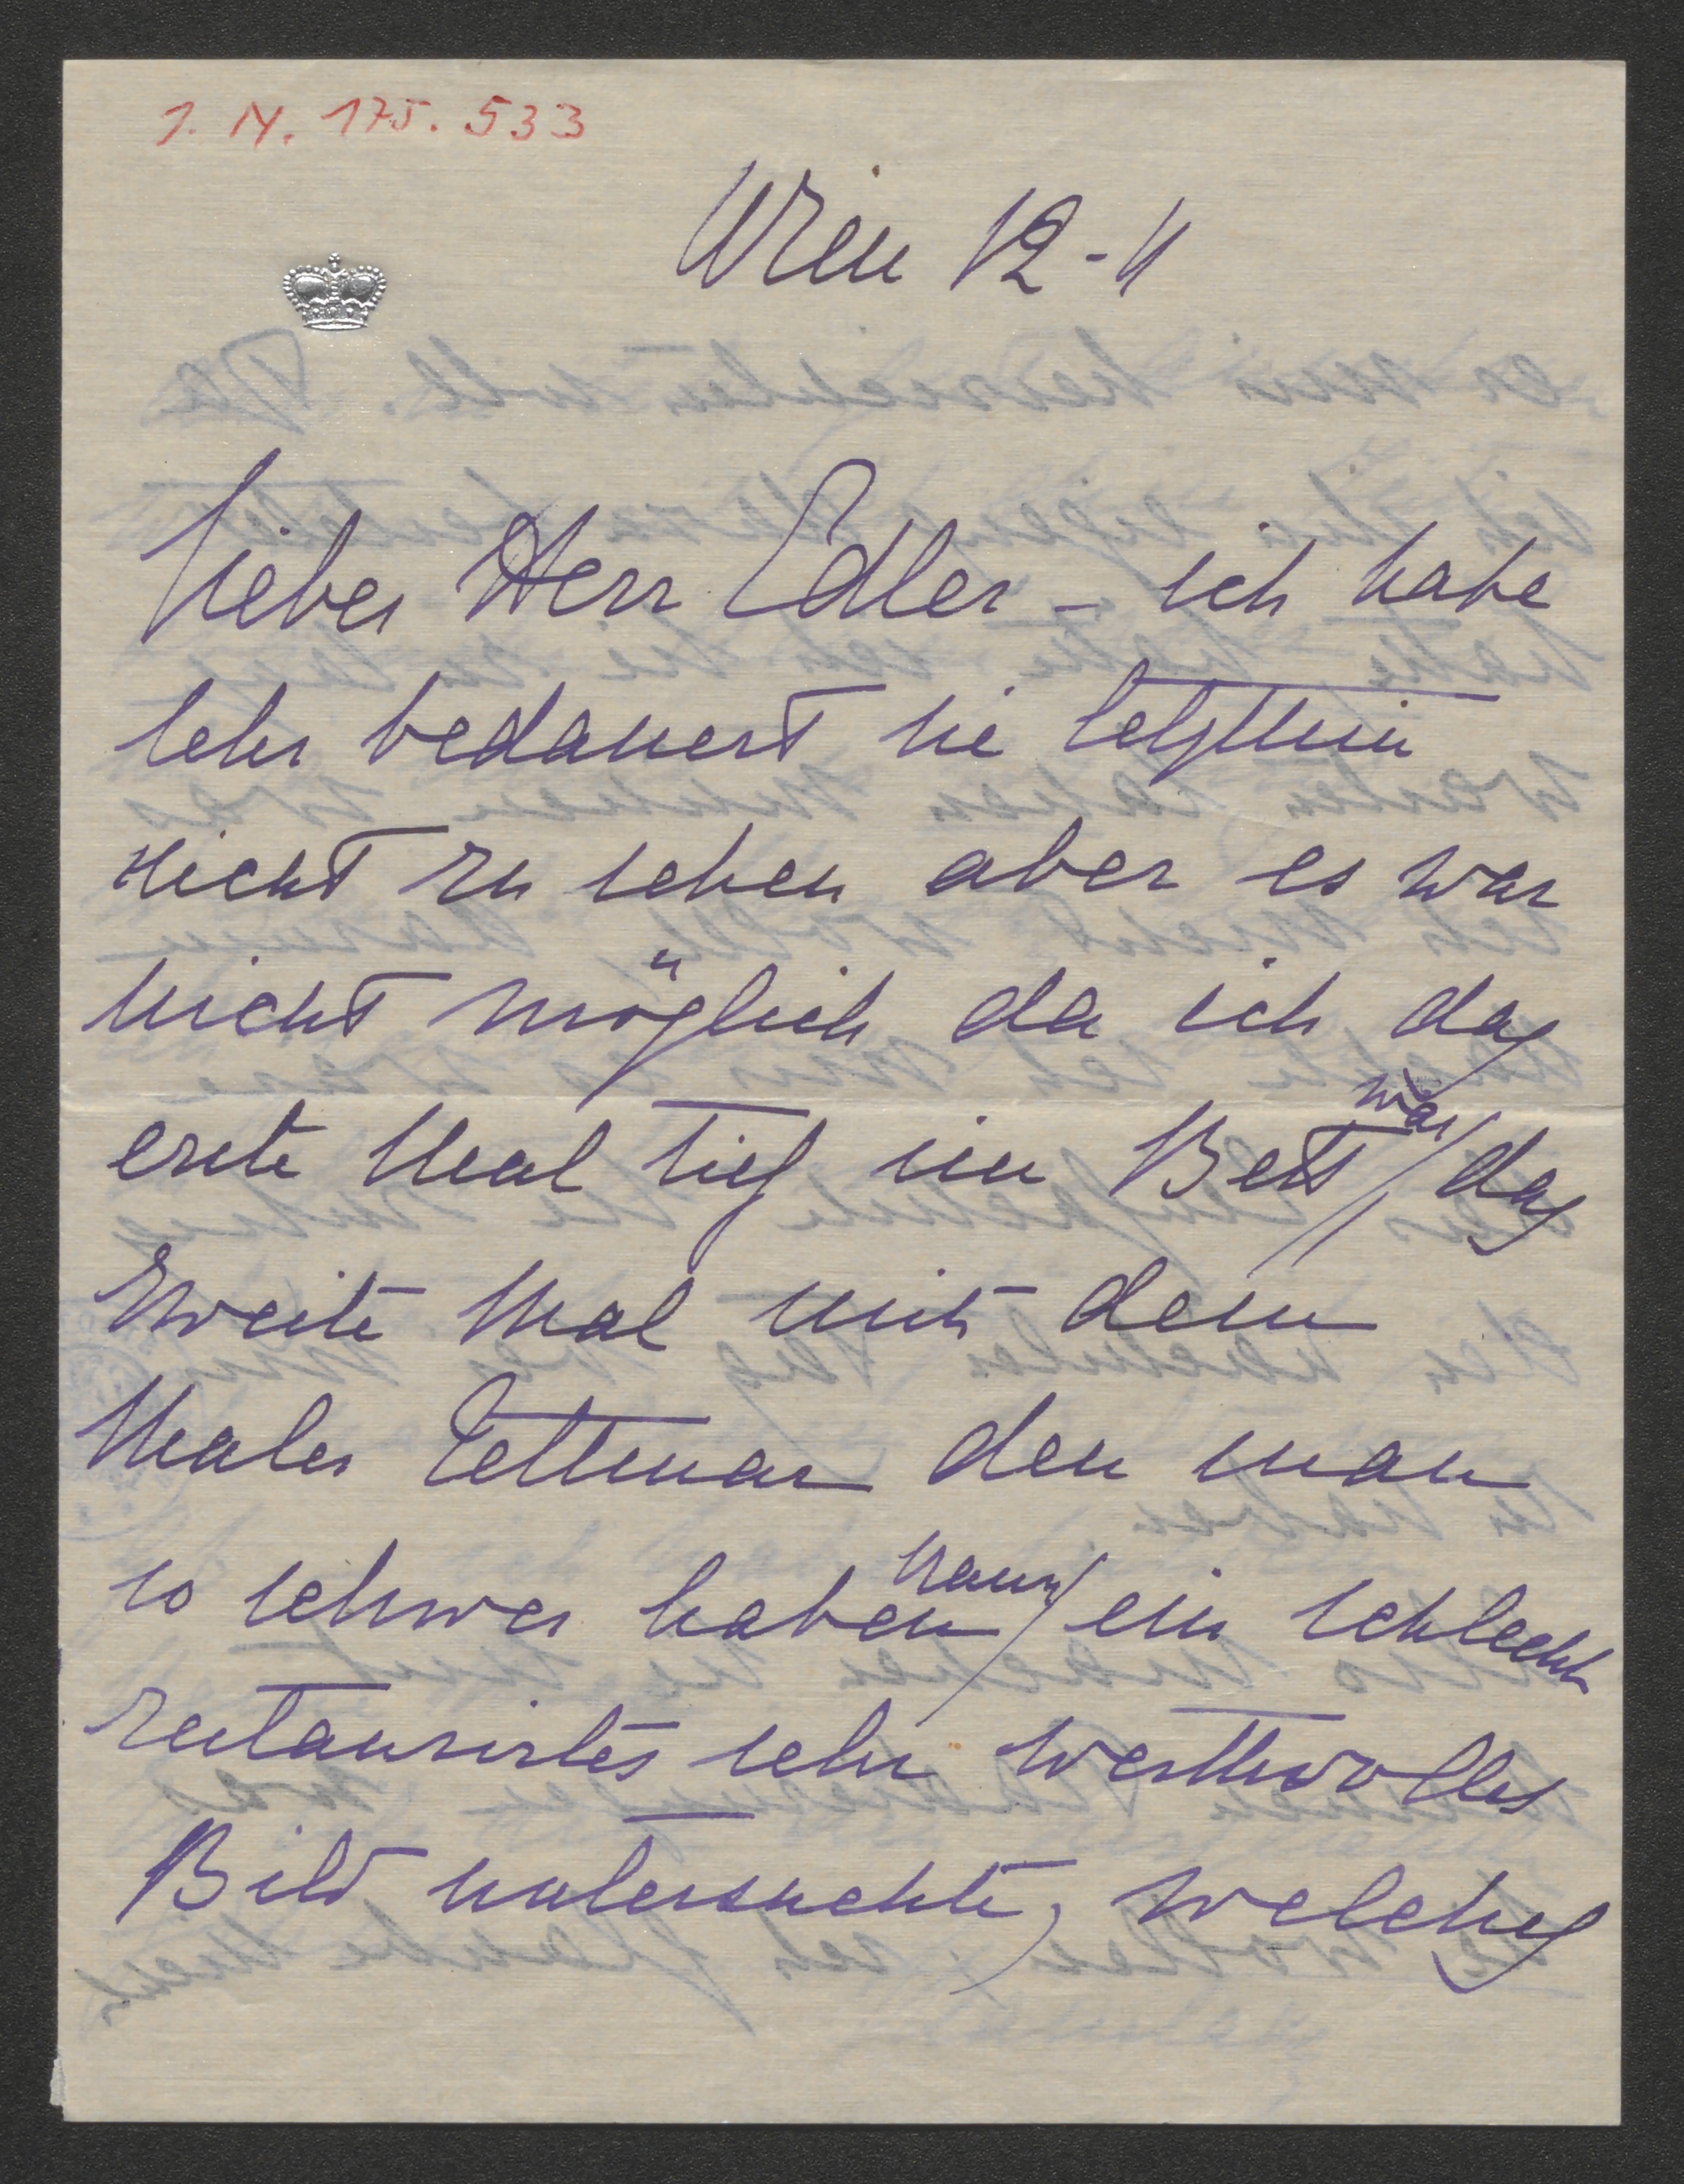 J. N. 175.533
Wien 12-11
Lieber Herr Edler - ich habe
sehr bedauert sie letzthin
nicht zu sehen aber es war
nicht möglich da ich das
erste Mal tief im Bett war / das
zweite Mal mit dem
Maler Tettmar den man
so schwer haben kann / ein schlecht
restaurirtes sehr werthvolles
Bild untersuchte, welches